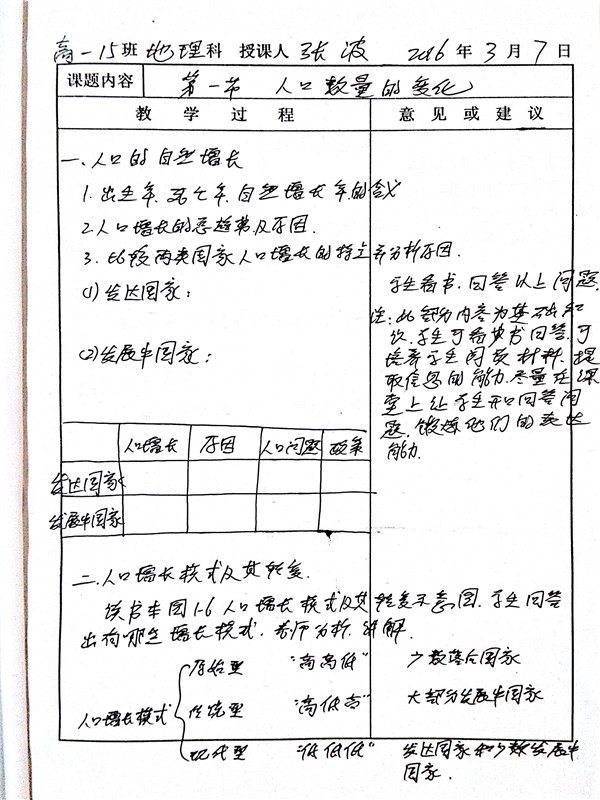 高一15班 地理科 授课人 张波 2016年3月7日
课题内容 第一节 人口数量的变化
教学过程 意见或建议
一、人口的自然增长
1.出生率、死亡率、自然增长率的含义
2.人口增长的总趋势及原因.
3.比较两类国家人口增长的特点并分析原因.
(1)发达国家：
(2)发展中国家：
学生看书.回答以上问题.
注：此部分内容为基础知
识.学生可看块书回答.可
培养学生阅读材料、提
取信息的能力.尽量在课
堂上让学生开口回答问
题.锻炼他们的表达
能力.
人口增长 原因 人口问题 政策
发达国家
发展中国家
二.人口增长模式及其转变.
读书本图1-6人口增长模式及其转变示意图.学生回答
出有哪些增长模式.老师分析.讲解.
人口增长模式
原始型 "高高低" 少数落后国家
传统型 "高低高" 大部分发展中国家
现代型 "低低低" 发达国家和少数发展中
国家.